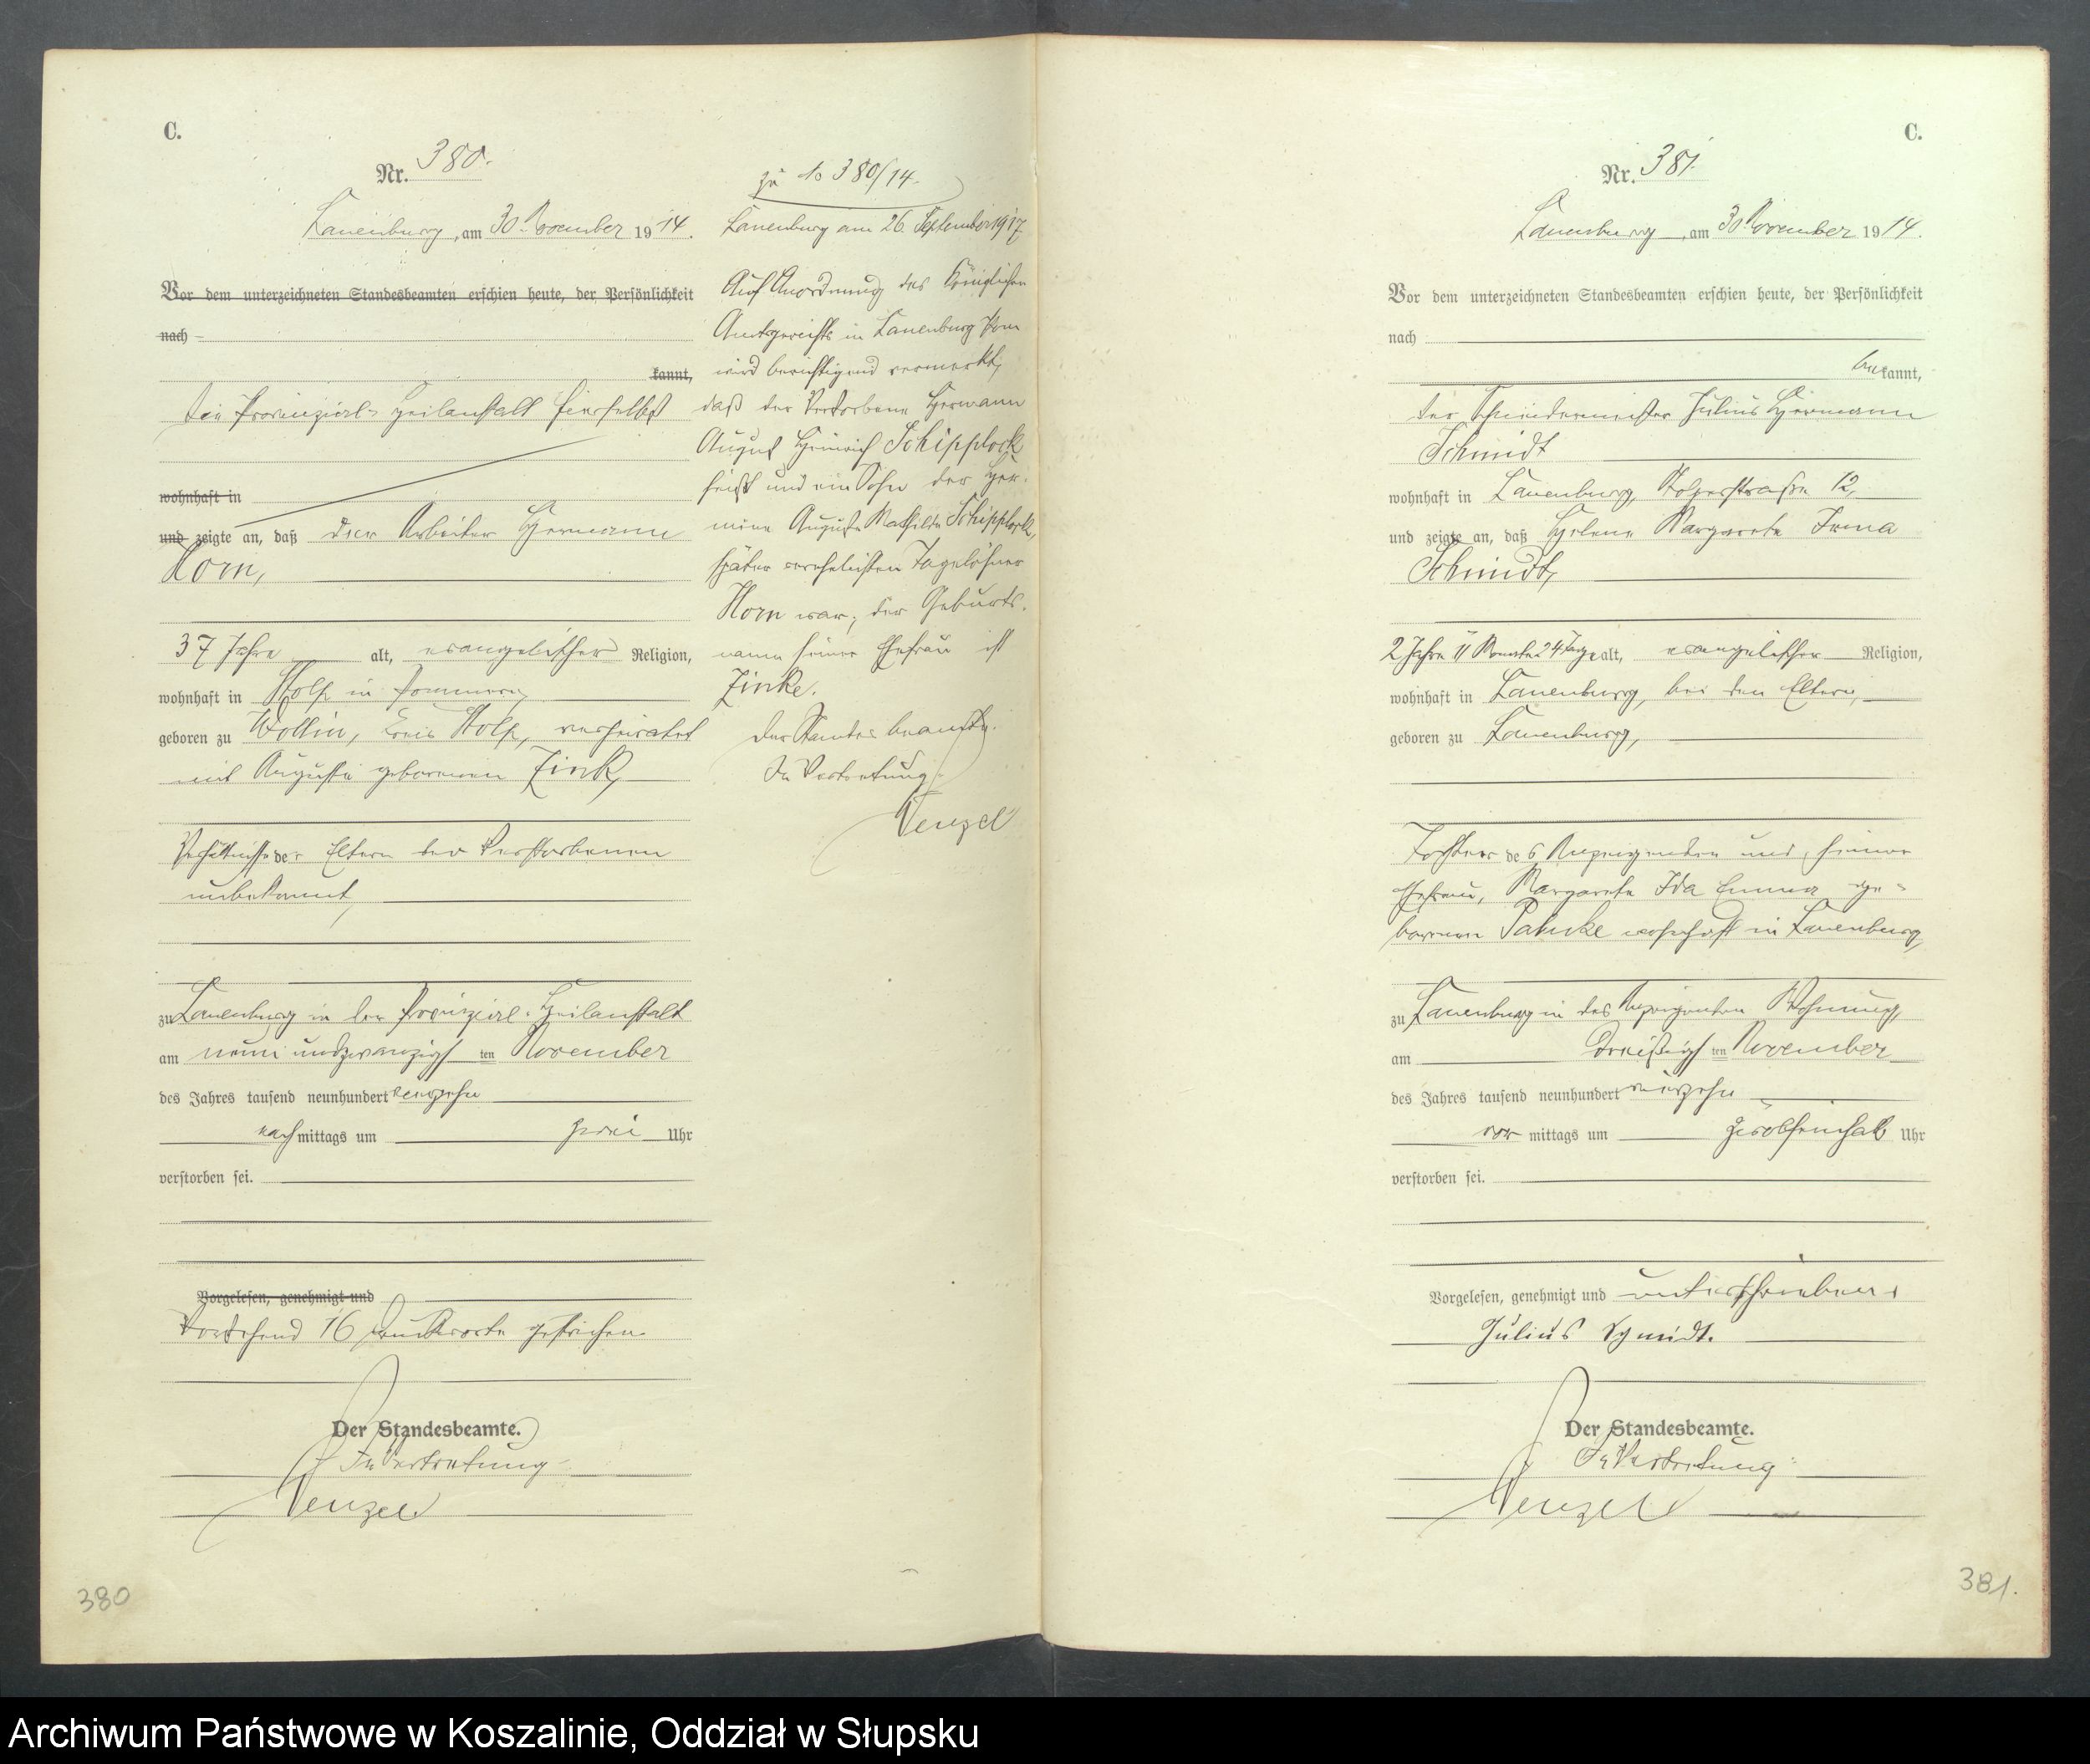 C.
Nr. 380.
Lauenburg, am 30. November 1914.
Vor dem unterzeichneten Standesbeamten erschien heute, der Persönlichkeit
nach
kannt,
die Provinzial-Heilanstalt hierselbst
wohnhaft in
und zeigte an, daß der Arbeiter Hermann
Horn,
37 Jahre alt, evangelischer Religion,
wohnhaft in Stolp in Pommern,
geboren zu Wollin, Kreis Stolp, verheiratet
mit Auguste geborenen Zink,
der Eltern des Verstorbenen
unbekannt,
zu Lauenburg in der Provinzial-Heilanstalt
am neun und zwanzigsten November
des Jahres tausend neunhundert vierzehn
nachmittags um zwei Uhr
verstorben sei.
Vorgelesen, genehmigt und
Vorstehend 16 Druckworte gestrichen.
Der Standesbeamte.
In Vertretung
Wenzel
380
zu No 380/14.
Lauenburg am 26. September 1917
Auf Anordnung des Königlichen
Amtsgerichts in Lauenburg Pom
wird berichtigend vermerkt,
daß der Verstorbene Hermann
August Heinrich Schipplock
heißt und ein Sohn der Her-
mine Auguste Mathilde Schipplock,
später verehelichten Tagelöhner
Horn war; der Geburts-
name seiner Ehefrau ist
Zinke.
Der Standesbeamte.
In Vertretung:
Wenzel
C.
Nr. 381.
Lauenburg, am 30. November 1914.
Vor dem unterzeichneten Standesbeamten erschien heute, der Persönlichkeit
nach
bekannt,
der Schneidermeister Julius Hermann
Schmidt
wohnhaft in Lauenburg, Stolperstraße 12,
und zeigte an, daß Helene Margarete Irma
Schmidt,
2 Jahre 11 Monate 24 Tage alt, evangelischer Religion,
wohnhaft in Lauenburg, bei den Eltern,
geboren zu Lauenburg,
Tochter des Anzeigenden und seiner
Ehefrau, Margarete Ida Emma ge-
borenen Pahnke wohnhaft in Lauenburg,
zu Lauenburg in des Anzeigenden Wohnung,
am dreißigsten November
des Jahres tausend neunhundert vierzehn
vormittags um zwölfeinhalb Uhr
verstorben sei.
Vorgelesen, genehmigt und unterschrieben:
Julius Schmidt.
Der Standesbeamte.
In Vertretung:
Wenzel
381.
Archiwum Państwowe w Koszalinie, Oddział w Słupsku